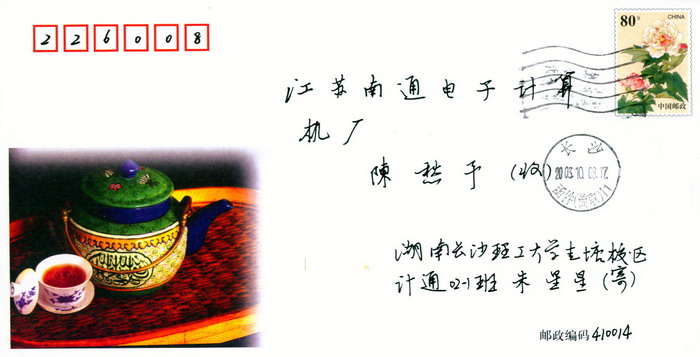 226008
80分
CHINA
中国邮政
江苏南通电子计算
机厂
陳愁予(收)
长沙
2003.10.03.17
湖南长沙理工大学圭塘校区
计通02-1班 朱星星(寄)
邮政编码410014